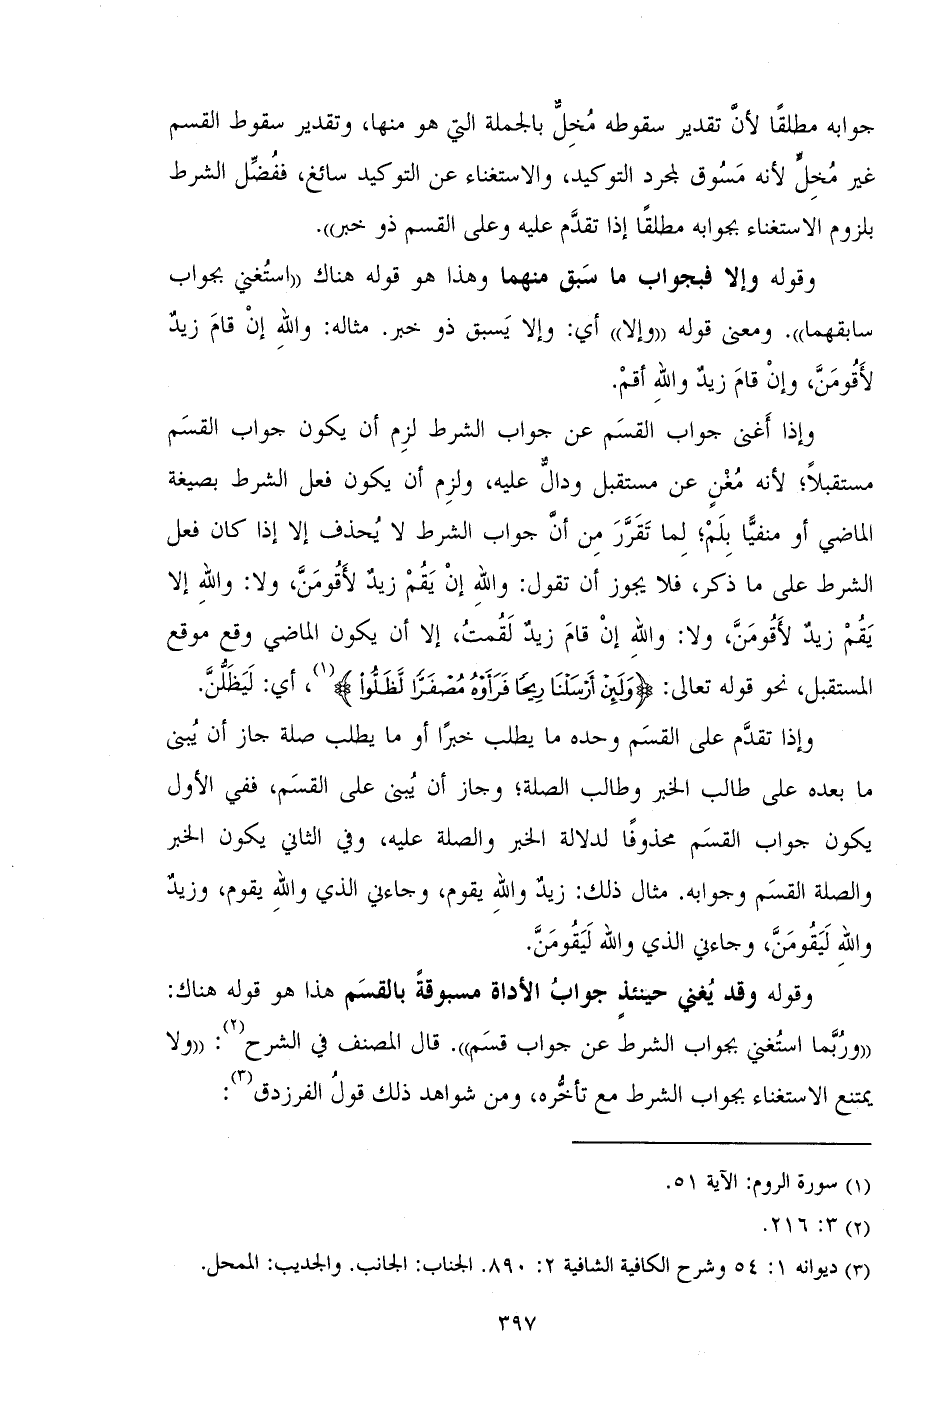 جوابه مطلقًا لأنَّ تقدير سقوطه مُخِلٌّ بالجملة التي هو منها، وتقدير سقوط القسم
غير مُخِلٍّ لأنه مَسُوق لمجرد التوكيد، والاستغناء عن التوكيد سائغ، ففُضِّل الشرط
بلزوم الاستغناء بجوابه مطلقًا إذا تقدَّم عليه وعلى القسم ذو خبر)).
وقوله وإلا فبجواب ما سَبق منهما وهذا هو قوله هناك ((استُغني بجواب
سابقهما)). ومعنى قوله ((وإلا)) أي: وإلا يَسبق ذو خبر. مثاله: واللهِ إنْ قامَ زيدٌ
لأَقُومَنَّ، وإنْ قامَ زيدٌ واللهِ أقمْ.
وإذا أَغنى جواب القسَم عن جواب الشرط لزِم أن يكون جواب القسَم
مستقبلاً؛ لأنه مُغْنٍ عن مستقبل ودالٌّ عليه، ولزم أن يكون فعل الشرط بصيغة
الماضي أو منفيًّا بِلَمْ؛ لِما تَقَرَّرَ مِن أنَّ جواب الشرط لا يُحذف إلا إذا كان فعل
الشرط على ما ذكر، فلا يجوز أن تقول: واللهِ إنْ يَقُمْ زيدٌ لأَقُومَنَّ، ولا: واللهِ إلا
يَقُمْ زيدٌ لأَقُومَنَّ، ولا: واللهِ إنْ قامَ زيدٌ لَقُمتُ، إلا أن يكون الماضي وقع موقع
المستقبل، نحو قوله تعالى: ﴿وَلَئِنْ أَرْسَلْنَا رِيحًا فَرَأَوْهُ مُصْفَرًّا لَّظَلُّواْ﴾(١)، أي: لَيَظَلُّنَّ.
وإذا تقدَّم على القسَم وحده ما يطلب خبرًا أو ما يطلب صلة جاز أن يُبنى
ما بعده على طالب الخبر وطالب الصلة؛ وجاز أن يُبنى على القسَم، ففي الأول
يكون جواب القسَم محذوفًا لدلالة الخبر والصلة عليه، وفي الثاني يكون الخبر
والصلة القسَم وجوابه. مثال ذلك: زيدٌ واللهِ يقوم، وجاءني الذي واللهِ يقوم، وزيدٌ
واللهِ لَيَقُومَنَّ، وجاءني الذي والله لَيَقُومَنَّ.
وقوله وقد يُغني حينئذٍ جوابُ الأداة مسبوقةً بالقسَم هذا هو قوله هناك:
((ورُبَّما استُغني بجواب الشرط عن جواب قسَم)). قال المصنف في الشرح(٢): ((ولا
يمتنع الاستغناء بجواب الشرط مع تأخُّره، ومن شواهد ذلك قولُ الفرزدق(٣):
(١) سورة الروم: الآية ٥١.
(٢) ٣: ٢١٦.
(٣) ديوانه ١: ٥٤ وشرح الكافية الشافية ٢: ٨٩٠. الجناب: الجانب. والجديب: الممحل.
٣٩٧